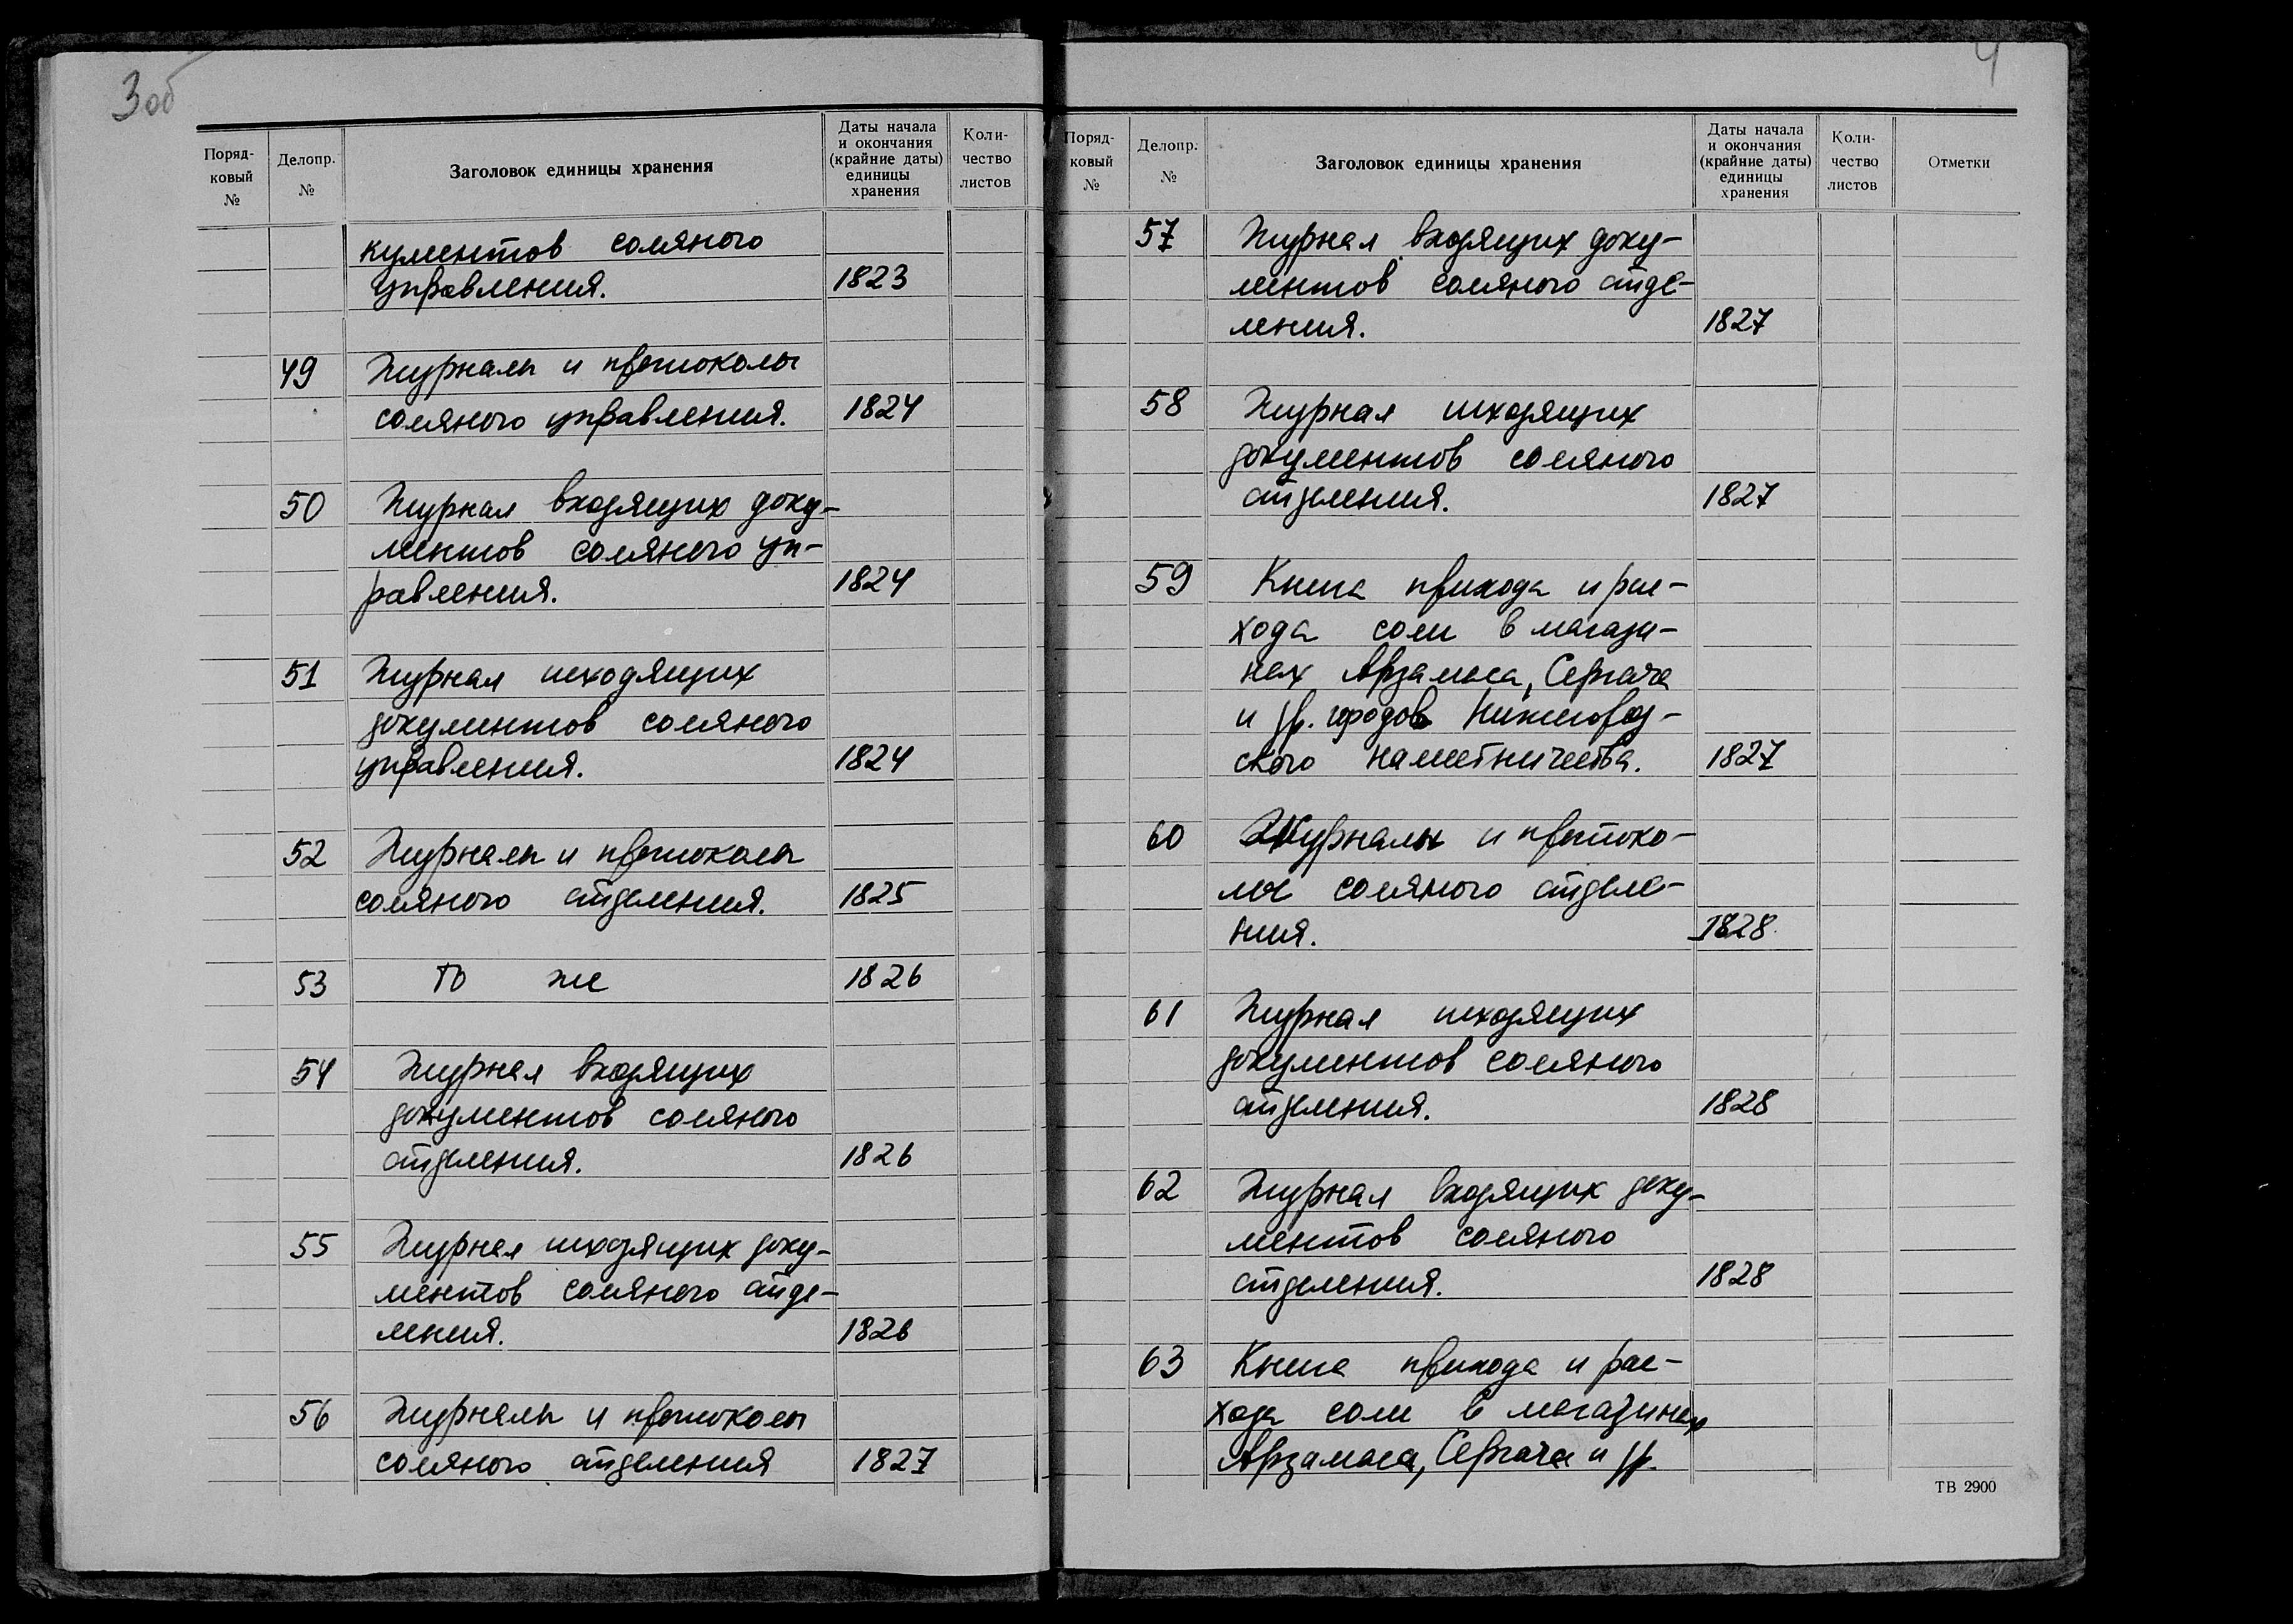 3об
Поряд-
ковый
№
Делопр.
№
Заголовок единицы хранения
Даты начала
и окончания
(крайние даты)
единицы
хранения
Коли-
чество
листов
кументов соляного
управления. 1823
49 Журналы и протоколы
соляного управления. 1824
50 Журнал входящих доку-
ментов соляного уп-
равления. 1824
51 Журнал исходящих
документов соляного
управления. 1824
52 Журналы и протоколы
соляного отделения. 1825
53 То же 1826
54 Журнал входящих
документов соляного
отделения. 1826
55 Журнал исходящих доку-
ментов соляного отде-
ления. 1826
56 Журналы и протоколы
соляного отделения 1827
4
Поряд-
ковый
№
Делопр.
№
Заголовок единицы хранения
Даты начала
и окончания
(крайние даты)
единицы
хранения
Коли-
чество
листов
Отметки
57 Журнал входящих доку-
ментов соляного отде-
ления. 1827
58 Журнал исходящих
документов соляного
отделения. 1827
59 Книга прихода и рас-
хода соли в магази-
нах Арзамаса, Сергача
и др. городов Нижегород-
ского наместничества. 1827
60 Журналы и протоко-
лы соляного отделе-
ния. 1828
61 Журнал исходящих
документов соляного
отделения. 1828
62 Журнал входящих доку-
ментов соляного
отделения. 1828
63 Книга прихода и рас-
хода соли в магазинах
Арзамаса, Сергача и др.
ТВ 2900